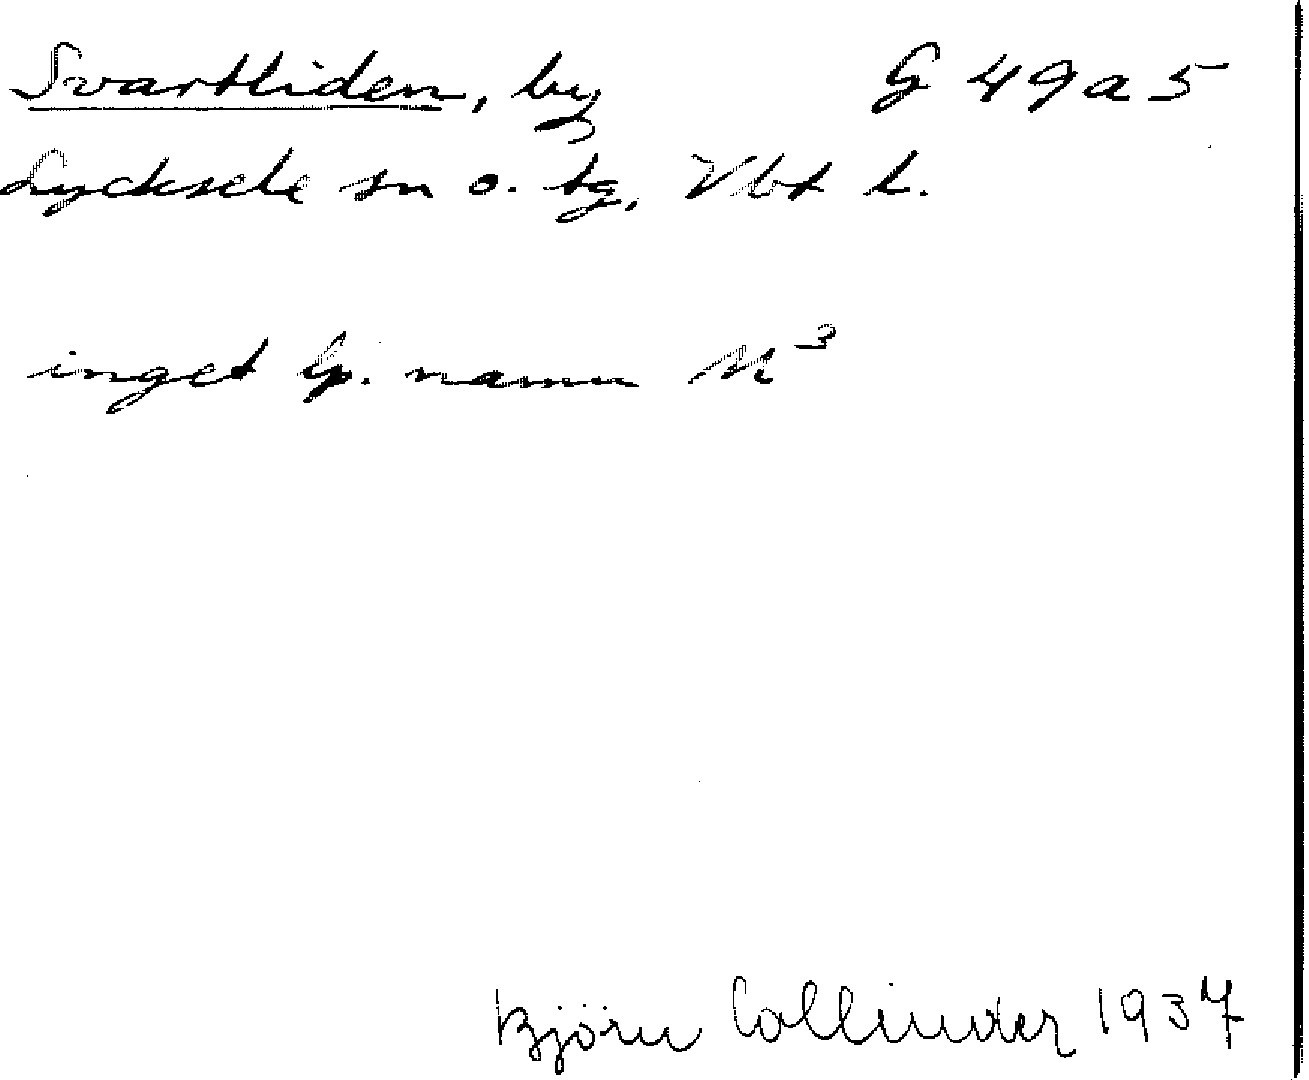 Svartliden, by G 49a5
Lycksele sn o. tg, Vbt l.
inget lp. namn N³
Björn Collinder 1937